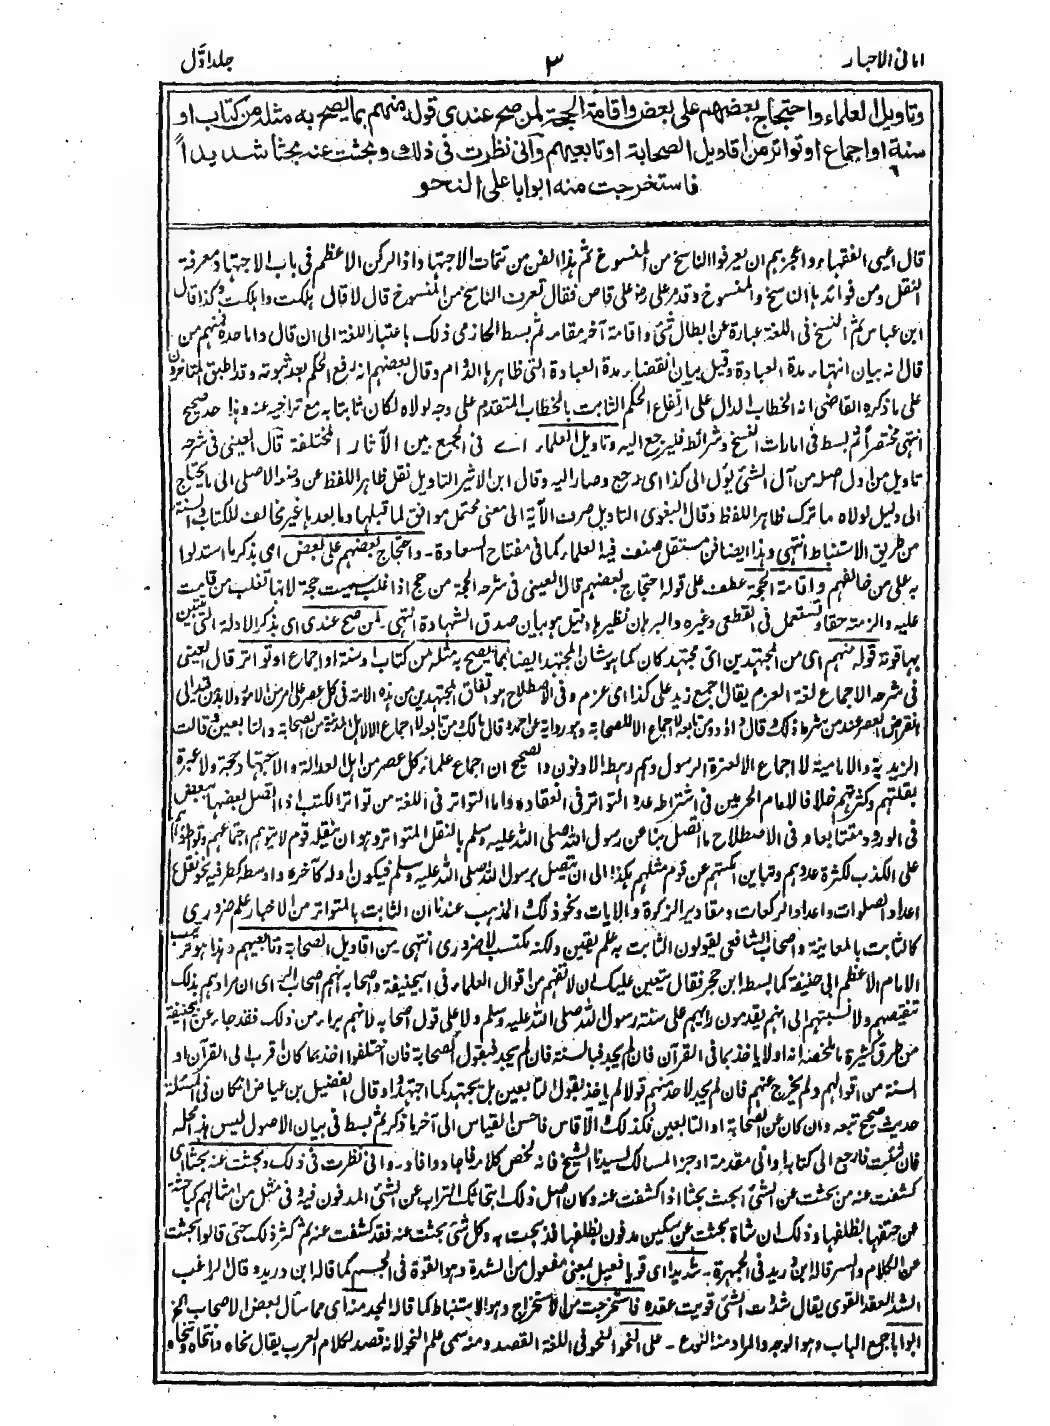 امانی الاحبار ۳ جلد اوّل
وتاويل العلماء واحتجاج بعضهم على بعض واقامة الحجة لمن صح عندى قوله منهم بما يصح به مثله من كتاب او
سنة او اجماع او تواتر من اقاويل الصحابة او تابعيهم وانى نظرت فى ذلك وبحثت عنه بحثا شديداً
فاستخرجت منه ابوابا على النحو
قال اعيى الفقهاء واعجزهم ان يعرفوا الناسخ من المنسوخ ثم هذا الفن من تتمات الاجتهاد اذ الركن الاعظم فى باب الاجتهاد معرفة
النقل ومن فوائد الناسخ والمنسوخ وقد مر على رض على قاص فقال تعرف الناسخ من المنسوخ قال لا قال هلكت واهلكت وكذا قال
ابن عباس ثم النسخ فى اللغة عبارة عن ابطال شئ واقامة آخر مقامه ثم بسط الحازمى ذلك باعتبار اللغة الى ان قال واما حده فمنهم من
قال انه بيان انتهاء مدة العبادة وقيل بيان انقضاء مدة العبادة التى ظاهرها الدوام وقال بعضهم انه رفع الحكم بعد ثبوته وقد اطبق المتاخرون
على ما ذكره القاضى انه الخطاب الدال على ارتفاع الحكم الثابت بالخطاب المتقدم على وجه لولاه لكان ثابتا به مع تراخيه عنه وهذا حد صحيح
انتهى مختصراً ثم بسط فى امارات النسخ وشرائطه فليرجع اليه وتاويل العلماء اے فى الجمع بين الآثار المختلفة قال العينى فى شرحه
تاويل من اول اصله من آل الشئ يؤل الى كذا اى رجع وصار اليه وقال ابن الاثير التاويل نقل ظاهر اللفظ عن وضعه الاصلى الى ما يحتاج
الى دليل لولاه ما ترك ظاهر اللفظ وقال البغوى التاويل صرف الآية الى معنى محتمل موافق لما قبلها وما بعدها غير مخالف للكتاب والسنة
من طريق الاستنباط انتهى وهذا ايضا فن مستقل صنف فيه العلماء كما فى مفتاح السعادة ۔ واحتجاج بعضهم على بعض اى بذكر ما استدلوا
به على من خالفهم واقامة الحجة عطف على قوله احتجاج بعضهم قال العينى فى شرحه الحجة من حج اذا غلب سميت حجة لانها تغلب من قامت
عليه والزمته حقا وتستعمل فى القطعى وغيره والبرهان نظيرها وقيل هو بيان صدق الشهادة انتهى ۔ لمن صح عندى اى بذكر الادلة التى تبين
بها قوة قوله منهم اى من المجتهدين اى مجتهد كان كما هو شان المجتهد ايضا بما يصح به مثله من كتاب او سنة او اجماع او تواتر قال العينى
فى شرحه الاجماع لغة العزم يقال اجمع زيد على كذا اى عزم وفى الاصطلاح هو اتفاق المجتهدين من هذه الامة فى كل عصر على امر من الامور ولا بد من قيد الى
انقراض العصر عند من شرط ذلك وقال داؤد ومن تابعه لا اجماع الا للصحابة وهو رواية عن احمد وقال مالك ومن تابعه لا اجماع الا لاهل المدينة من الصحابة والتابعين وقالت
الزيدية والامامية لا اجماع الا لعترة الرسول وهم رهط الاولون والصحيح ان اجماع علماء كل عصر من اهل العدالة والاجتهاد حجة ولا عبرة
بقلتهم وكثرتهم خلافا لامام الحرمين فى اشتراطه عدد التواتر فى انعقاده واما التواتر فى اللغة من تواتر الكتب اذا اتصل بعضها ببعض
فى الورود متتابعا و فى الاصطلاح ما اتصل بنا عن رسول الله صلى الله عليه وسلم بالنقل المتواتر وهو ان ينقله قوم لا يتوهم اجتماعهم وتواطؤهم
على الكذب لكثرة عددهم وتباين امكنتهم عن قوم مثلهم هكذا الى ان يتصل برسول الله صلى الله عليه وسلم فيكون اوله كآخره واوسطه كطرفيه نحو نقل
اعداد الصلوات واعداد الركعات ومقادير الزكوة والديات ونحو ذلك والمذهب عندنا ان الثابت بالمتواتر من الاخبار علم ضرورى
كالثابت بالمعاينة واصحاب الشافعى يقولون الثابت به علم يقين ولكنه مكتسب لا ضرورى انتهى من اقاويل الصحابة وتابعيهم وهذا هو مذهب
الامام الاعظم ابى حنيفة كما بسطه ابن حجر فقال يتعين عليك ان لا تفهم من اقوال العلماء فى ابيحنيفة واصحابه انهم اصحاب الرأى ان مرادهم بذلك
تنقيصهم ولا نسبتهم الى انهم يقدمون رايهم على سنة رسول الله صلى الله عليه وسلم ولا على قول اصحابه لانهم براء من ذلك فقد جاء عن ابيحنيفة
من طرق كثيرة ما ملخصه انه اولا ياخذ بما فى القرآن فان لم يجد فبالسنة فان لم يجد فبقول الصحابة فان اختلفوا اخذ بما كان اقرب الى القرآن او
السنة من اقوالهم ولم يخرج عنهم فان لم يجد لاحد منهم قولا لم ياخذ بقول التابعين بل يجتهد كما اجتهدوا وقال الفضيل بن عياض ان كان فى المسئلة
حديث صحيح تبعه وان كان عن الصحابة او التابعين فكذلك والا قاس فاحسن القياس الى آخر ما ذكر ثم بسط فى بيان الاصول ليس هذا محله
فان شئت فارجع الى كتابه والى مقدمة اوجز المسالك لسيدنا الشيخ فانه لخص كلامه فاجاد وافاد ۔ وانى نظرت فى ذلك وبحثت عنه بحثا اى
كشفت عنه من بحثت عن الشئ ابحث بحثا اذا كشفت عنه وكان اصل ذلك ابتحاثك التراب عن الشئ المدفون فيه وفى مثل من امثالهم كباحثة
عن حتفها بظلفها وذلك ان شاة بحثت عن سكين مدفون بظلفها فذبحت به وكل شئ بحثت عنه فقد كشفت عنه ثم كثر ذلك حتى قالوا بحثت
عن الكلام والسر قاله ابن دريد فى الجمهرة ۔ شديدا اى قويا فعيل بمعنى مفعول من الشدة وهو القوة فى الجسم كما قاله ابن دريد و قال الراغب
الشد العقد القوى يقال شددت الشئ قويت عقده فاستخرجت من الاستخراج وهو الاستنباط كما قاله المجد منه اى مما سأل بعض الاصحاب الخ
ابوابا جمع الباب وهو الوجه والمراد منه النوع ۔ على النحو النحو فى اللغة القصد ومنه سمى علم النحو لانه قصد لكلام العرب يقال نحاه وانتحاه وتنحاه و